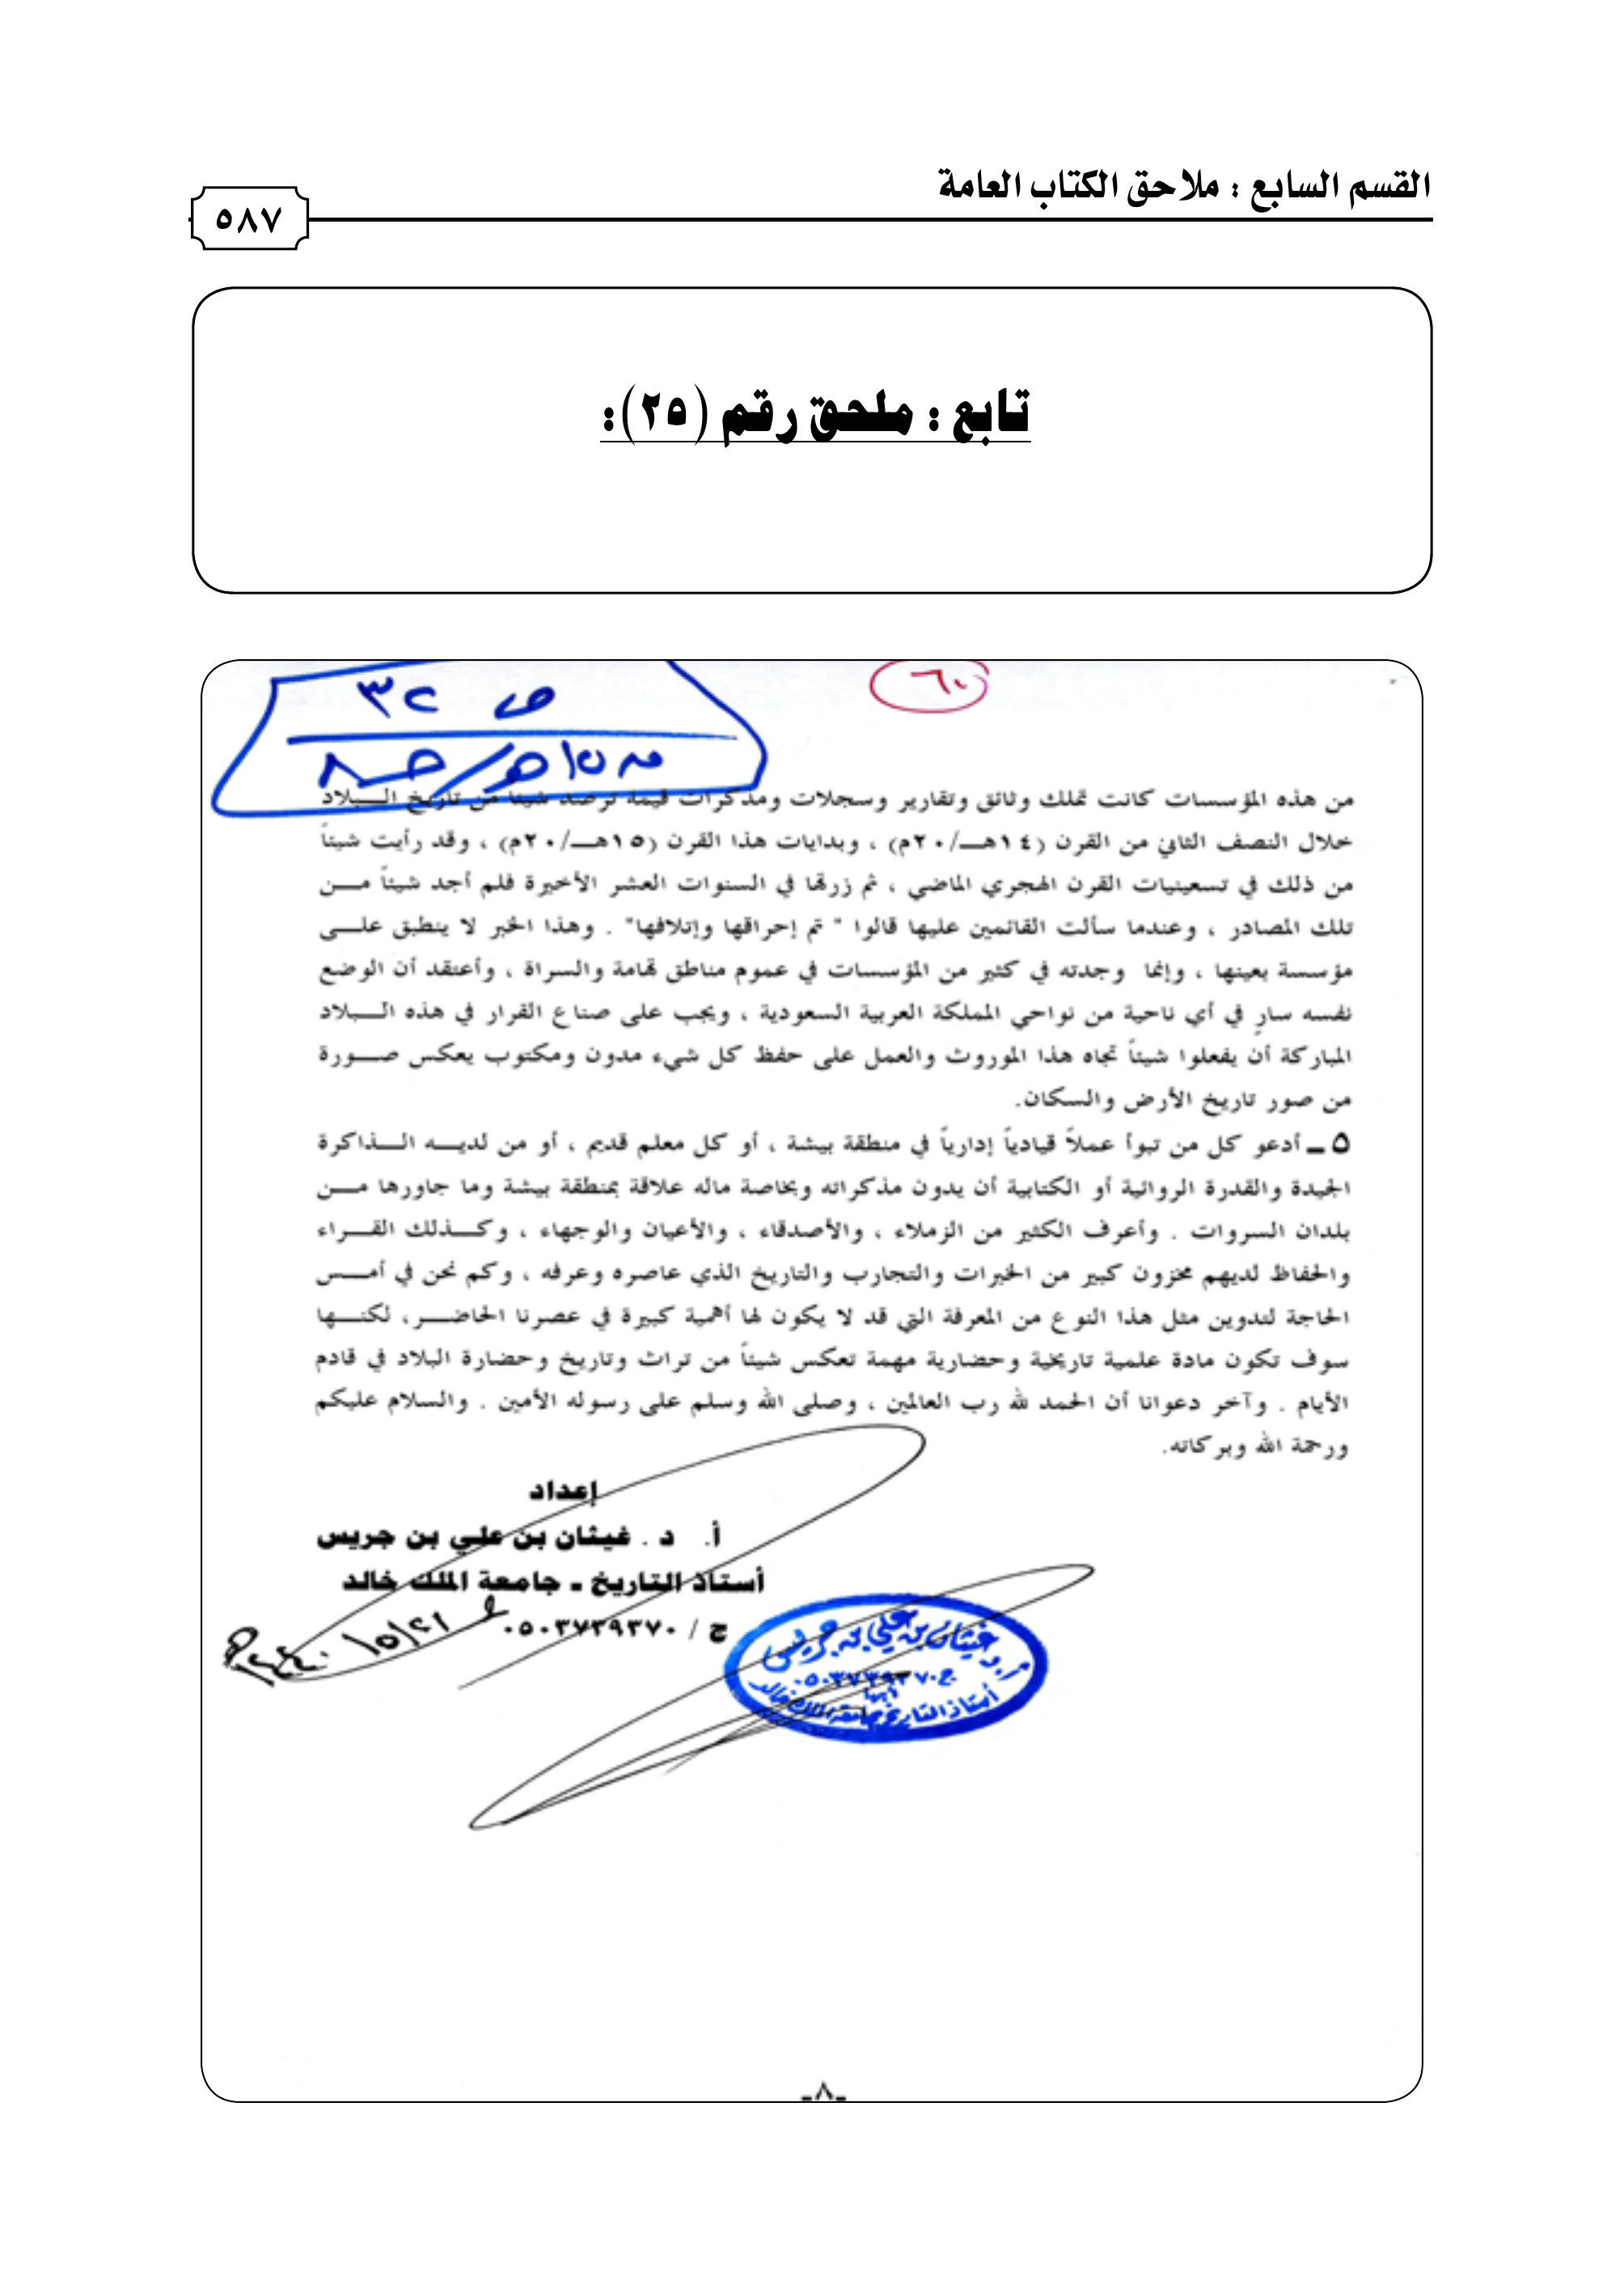 القسم السابع : ملاحق الكتاب العامة
٥٨٧
تابع : ملحق رقم (٢٥):
٦٠
ص ٣٢
من هذه المؤسسات كانت تملك وثائق وتقارير وسجلات ومذكرات قيمة ترصد شيئاً من تاريخ الـــبلاد
خلال النصف الثاني من القرن (١٤هـــ/٢٠م) ، وبدايات هذا القرن (١٥هـــ/٢٠م) ، وقد رأيت شيئاً
من ذلك في تسعينيات القرن الهجري الماضي ، ثم زرتها في السنوات العشر الأخيرة فلم أجد شيئاً مـــن
تلك المصادر ، وعندما سألت القائمين عليها قالوا " تم إحراقها وإتلافها" . وهذا الخبر لا ينطبق علـــى
مؤسسة بعينها ، وإنما وجدته في كثير من المؤسسات في عموم مناطق تهامة والسراة ، وأعتقد أن الوضع
نفسه سارٍ في أي ناحية من نواحي المملكة العربية السعودية ، ويجب على صناع القرار في هذه الـــبلاد
المباركة أن يفعلوا شيئاً تجاه هذا الموروث والعمل على حفظ كل شيء مدون ومكتوب يعكس صـــورة
من صور تاريخ الأرض والسكان.
٥ ـ أدعو كل من تبوأ عملاً قيادياً إدارياً في منطقة بيشة ، أو كل معلم قديم ، أو من لديـــه الـــذاكرة
الجيدة والقدرة الروائية أو الكتابية أن يدون مذكراته وبخاصة ماله علاقة بمنطقة بيشة وما جاورها مـــن
بلدان السروات . وأعرف الكثير من الزملاء ، والأصدقاء ، والأعيان والوجهاء ، وكـــذلك القـــراء
والحفاظ لديهم مخزون كبير من الخبرات والتجارب والتاريخ الذي عاصره وعرفه ، وكم نحن في أمـــس
الحاجة لتدوين مثل هذا النوع من المعرفة التي قد لا يكون لها أهمية كبيرة في عصرنا الحاضـــر، لكنـــها
سوف تكون مادة علمية تاريخية وحضارية مهمة تعكس شيئاً من تراث وتاريخ وحضارة البلاد في قادم
الأيام . وآخر دعوانا أن الحمد لله رب العالمين ، وصلى الله وسلم على رسوله الأمين . والسلام عليكم
ورحمة الله وبركاته.
إعداد
أ. د . غيثان بن علي بن جريس
أستاذ التاريخ ـ جامعة الملك خالد
ج / ٠٥٠٣٧٣٩٣٧٠
أ.د غيثان بن علي بن جريس
ج ٠٥٠٣٧٣٩٣٧٠
أبها
أستاذ التاريخ بجامعة الملك خالد
-٨-